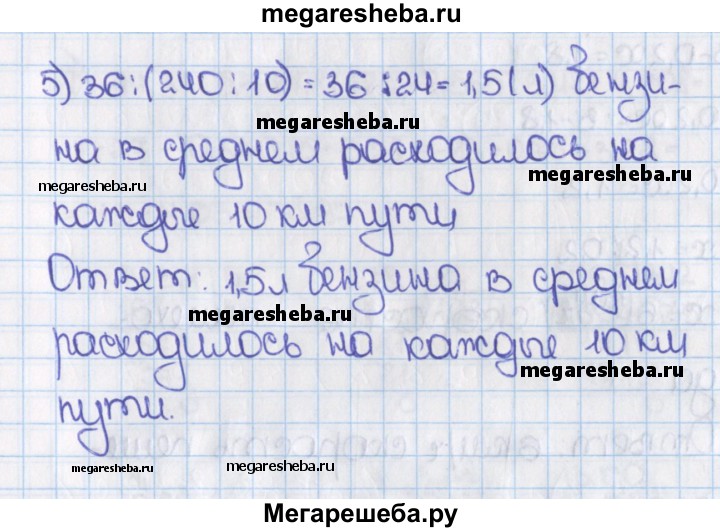 megaresheba.ru
5) 36:(240:10)=36:24=1,5(л) бензи-
megaresheba.ru
на в среднем расходилось на
megaresheba.ru
megaresheba.ru
каждые 10 км пути
Ответ: 1,5л бензина в среднем
megaresheba.ru
расходилось на каждые 10 км
megaresheba.ru
пути.
megaresheba.ru
megaresheba.ru
Мегарешеба.ру